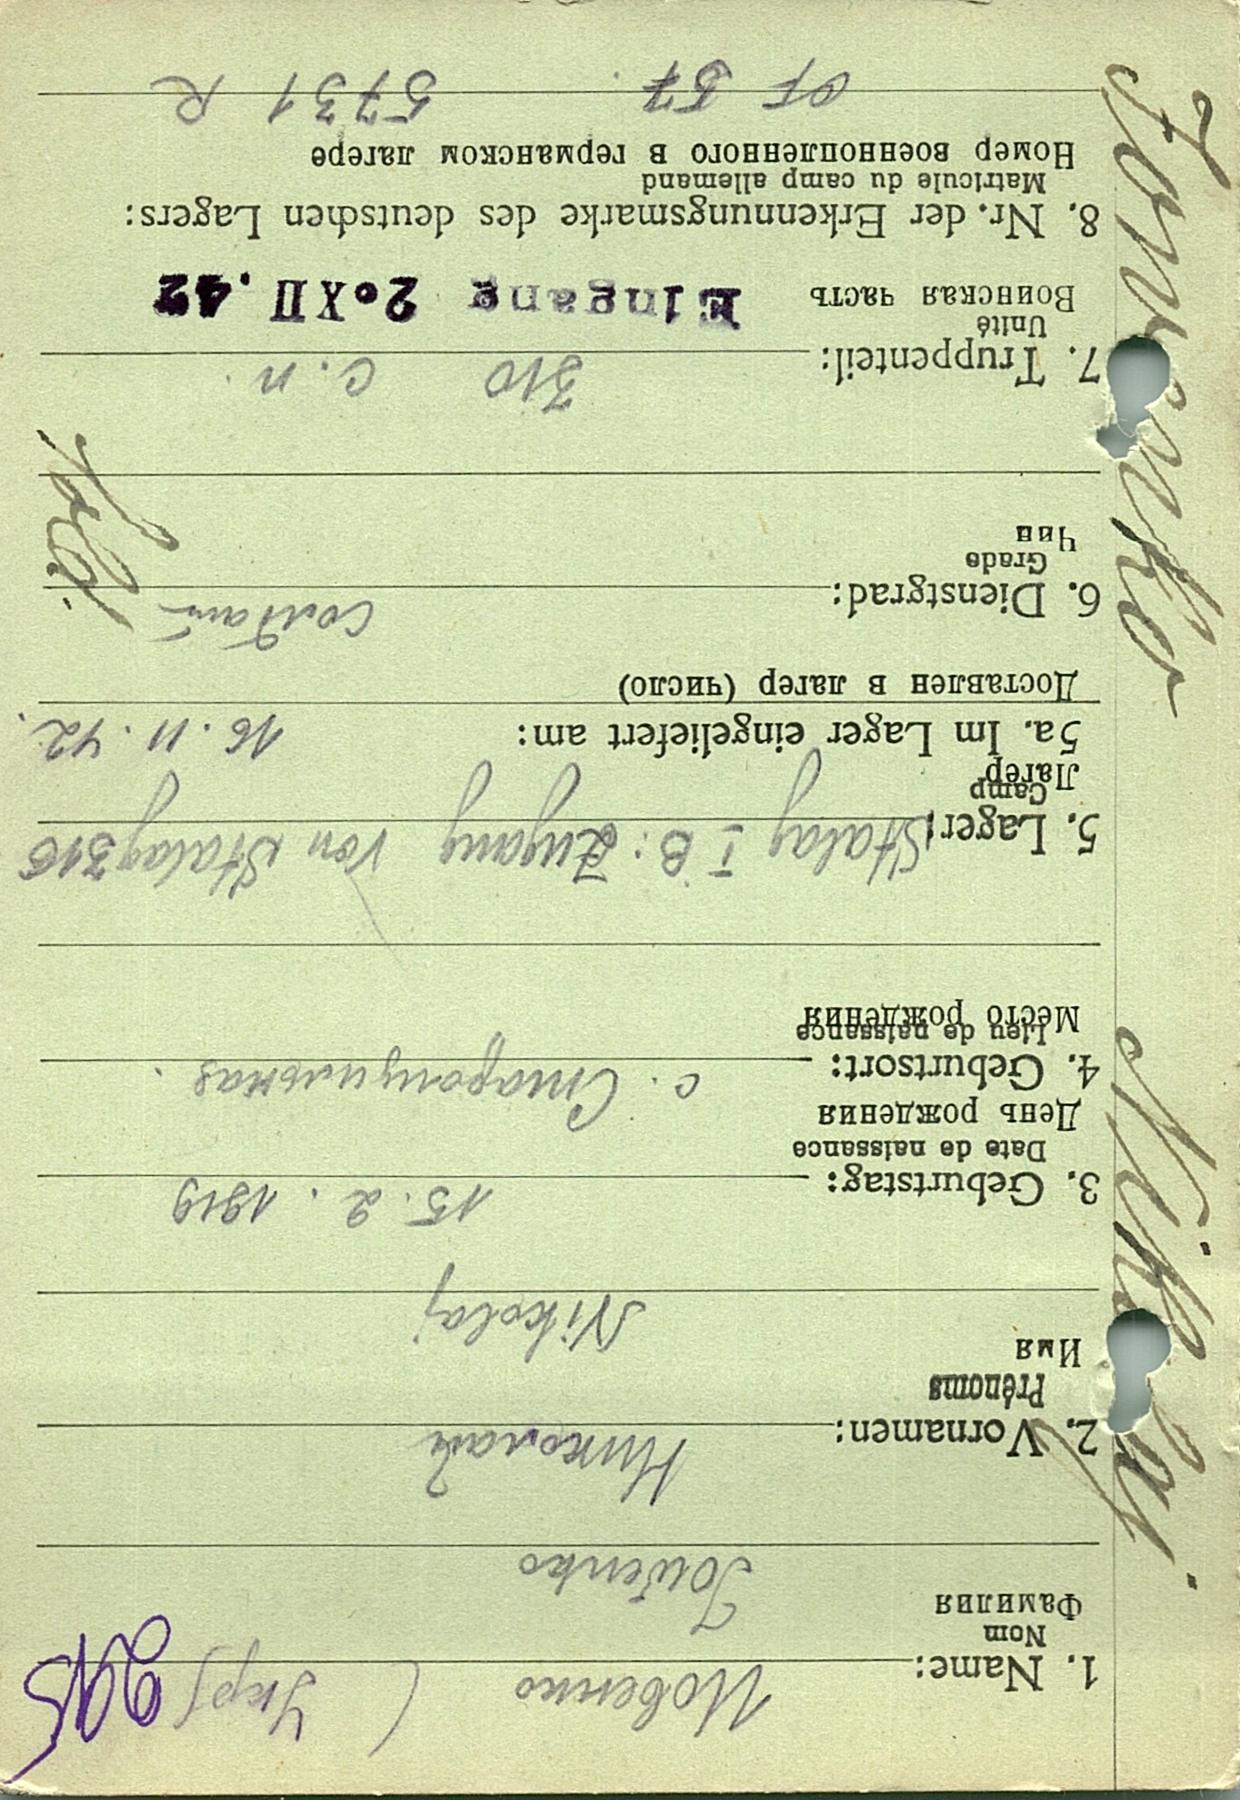 Jowenko Nikolaj
1. Name: Иовенко (Укр)
Nom
Фамилия
Jowenko
2. Vornamen: Николай
Prénoms
Имя
Nikolaj
3. Geburtstag: 15. 2. 1919
Date de naissance
День рождения
4. Geburtsort: с.
Lieu de naissance
Место рождения
5. Lager: Stalag I B: Zugang von Stalag 316
Camp
Лагер
5a. Im Lager eingeliefert am: 16. 11. 42.
Доставлен в лагер (число)
6. Dienstgrad: солдат
Grade
Чин
7. Truppenteil: 310 с.п.
Unité
Воинская часть Eingang 2.XII.42
8. Nr. der Erkennungsmarke des deutschen Lagers:
Matricule du camp allemand
Номер военнопленного в германском лагере
5731 R